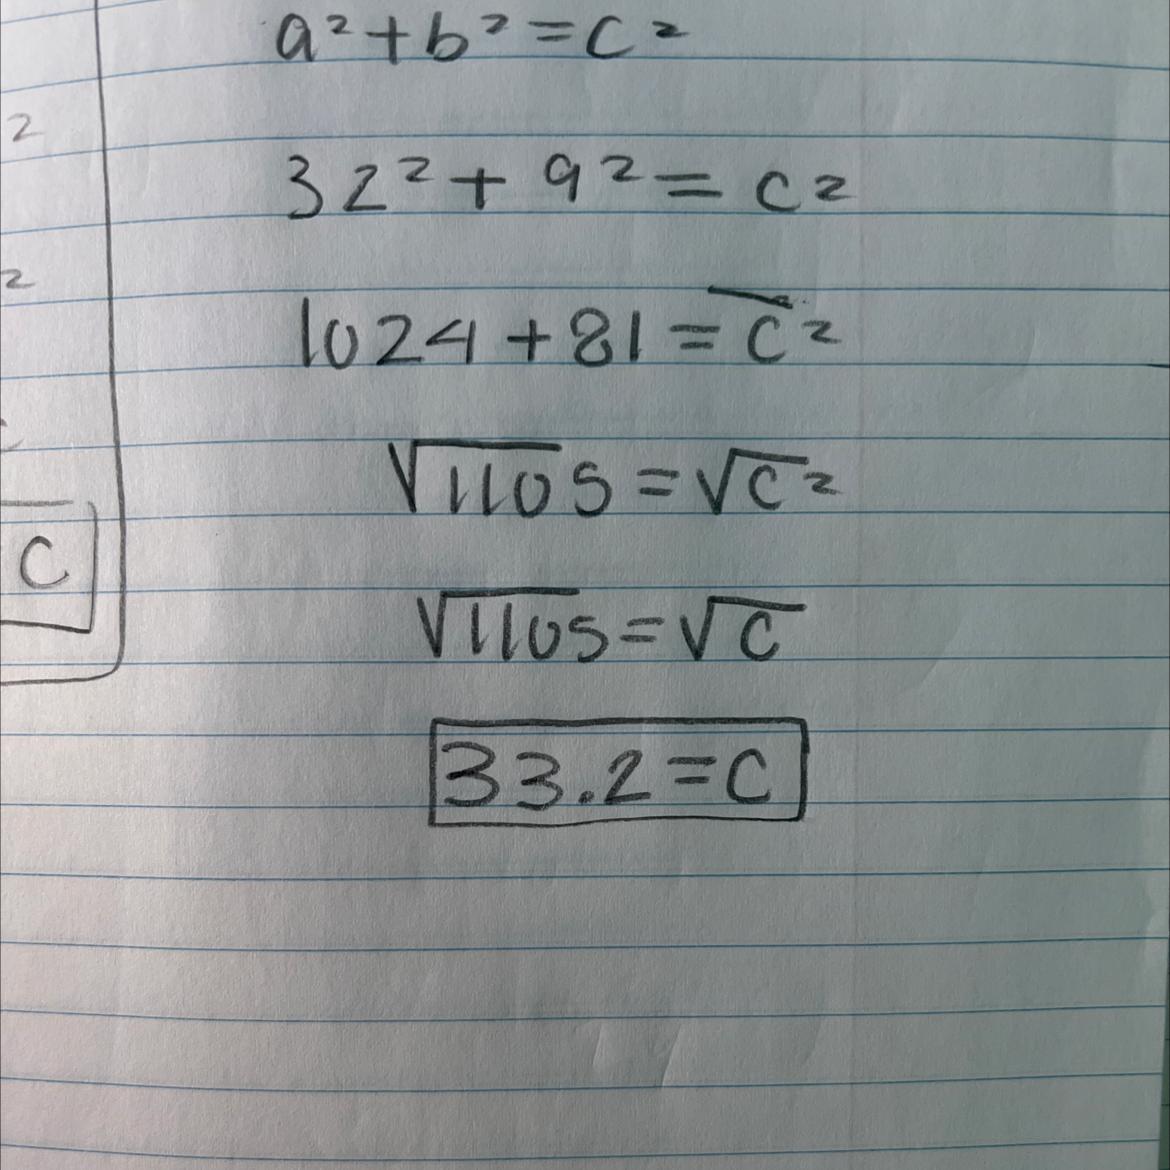 a²+b²=c²
2
32²+9²=c²
2
1024+81=c²
√1105=√c²
C
√1105=√c
33.2=c